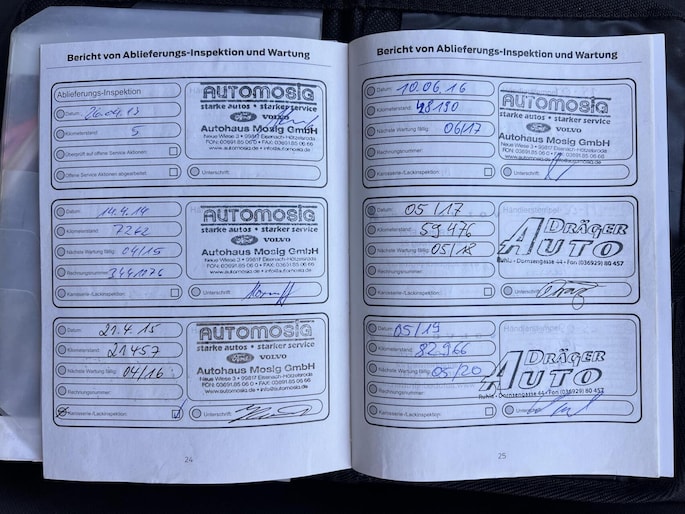 Bericht von Ablieferungs-Inspektion und Wartung
Ablieferungs-Inspektion
Datum: 26.04.13
Kilometerstand: 5
Überprüft auf offene Service Aktionen:
Offene Service Aktionen abgearbeitet:
AUTOMOSIG
starke autos • starker service
Ford VOLVO
Autohaus Mosig GmbH
Neue Wiese 3 • 99817 Eisenach-Hötzelsroda
FON: 03691.85 06 0 • FAX: 03691.85 06 66
www.automosig.de • info@automosig.de
Unterschrift:
Datum: 14.4.14
Kilometerstand: 7262
Nächste Wartung fällig: 04/15
Rechnungsnummer: 3441076
Karosserie-/Lackinspektion:
AUTOMOSIG
starke autos • starker service
Ford VOLVO
Autohaus Mosig GmbH
Neue Wiese 3 • 99817 Eisenach-Hötzelsroda
FON: 03691.85 06 0 • FAX: 03691.85 06 66
www.automosig.de • info@automosig.de
Unterschrift:
Datum: 21.4.15
Kilometerstand: 21457
Nächste Wartung fällig: 04/16
Rechnungsnummer:
Karosserie-/Lackinspektion:
AUTOMOSIG
starke autos • starker service
Ford VOLVO
Autohaus Mosig GmbH
Neue Wiese 3 • 99817 Eisenach-Hötzelsroda
FON: 03691.85 06 0 • FAX: 03691.85 06 66
www.automosig.de • info@automosig.de
Unterschrift:
24
Bericht von Ablieferungs-Inspektion und Wartung
Datum: 10.06.16
Kilometerstand: 48190
Nächste Wartung fällig: 06/17
Rechnungsnummer:
Karosserie-/Lackinspektion:
AUTOMOSIG
starke autos • starker service
Ford VOLVO
Autohaus Mosig GmbH
Neue Wiese 3 • 99817 Eisenach-Hötzelsroda
FON: 03691.85 06 0 • FAX: 03691.85 06 66
www.automosig.de • info@automosig.de
Unterschrift:
Datum: 05/17
Kilometerstand: 59476
Nächste Wartung fällig: 05/18
Rechnungsnummer:
Karosserie-/Lackinspektion:
Händlerstempel:
DRÄGER
AUTO
Ruhla • Dornsengasse 44 • Fon (036929) 80 457
Unterschrift:
Datum: 05/19
Kilometerstand: 82966
Nächste Wartung fällig: 05/20
Rechnungsnummer:
Karosserie-/Lackinspektion:
Händlerstempel:
DRÄGER
AUTO
Ruhla • Dornsengasse 44 • Fon (036929) 80 457
25